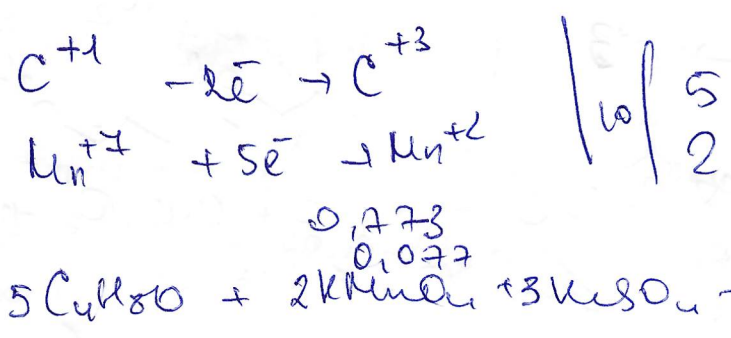 C⁺¹ −2ē → C⁺³ | 10 | 5
Mn⁺⁷ +5ē → Mn⁺² 2
0,773
0,077
5C₄H₈O + 2KMnO₄ +3H₂SO₄ -